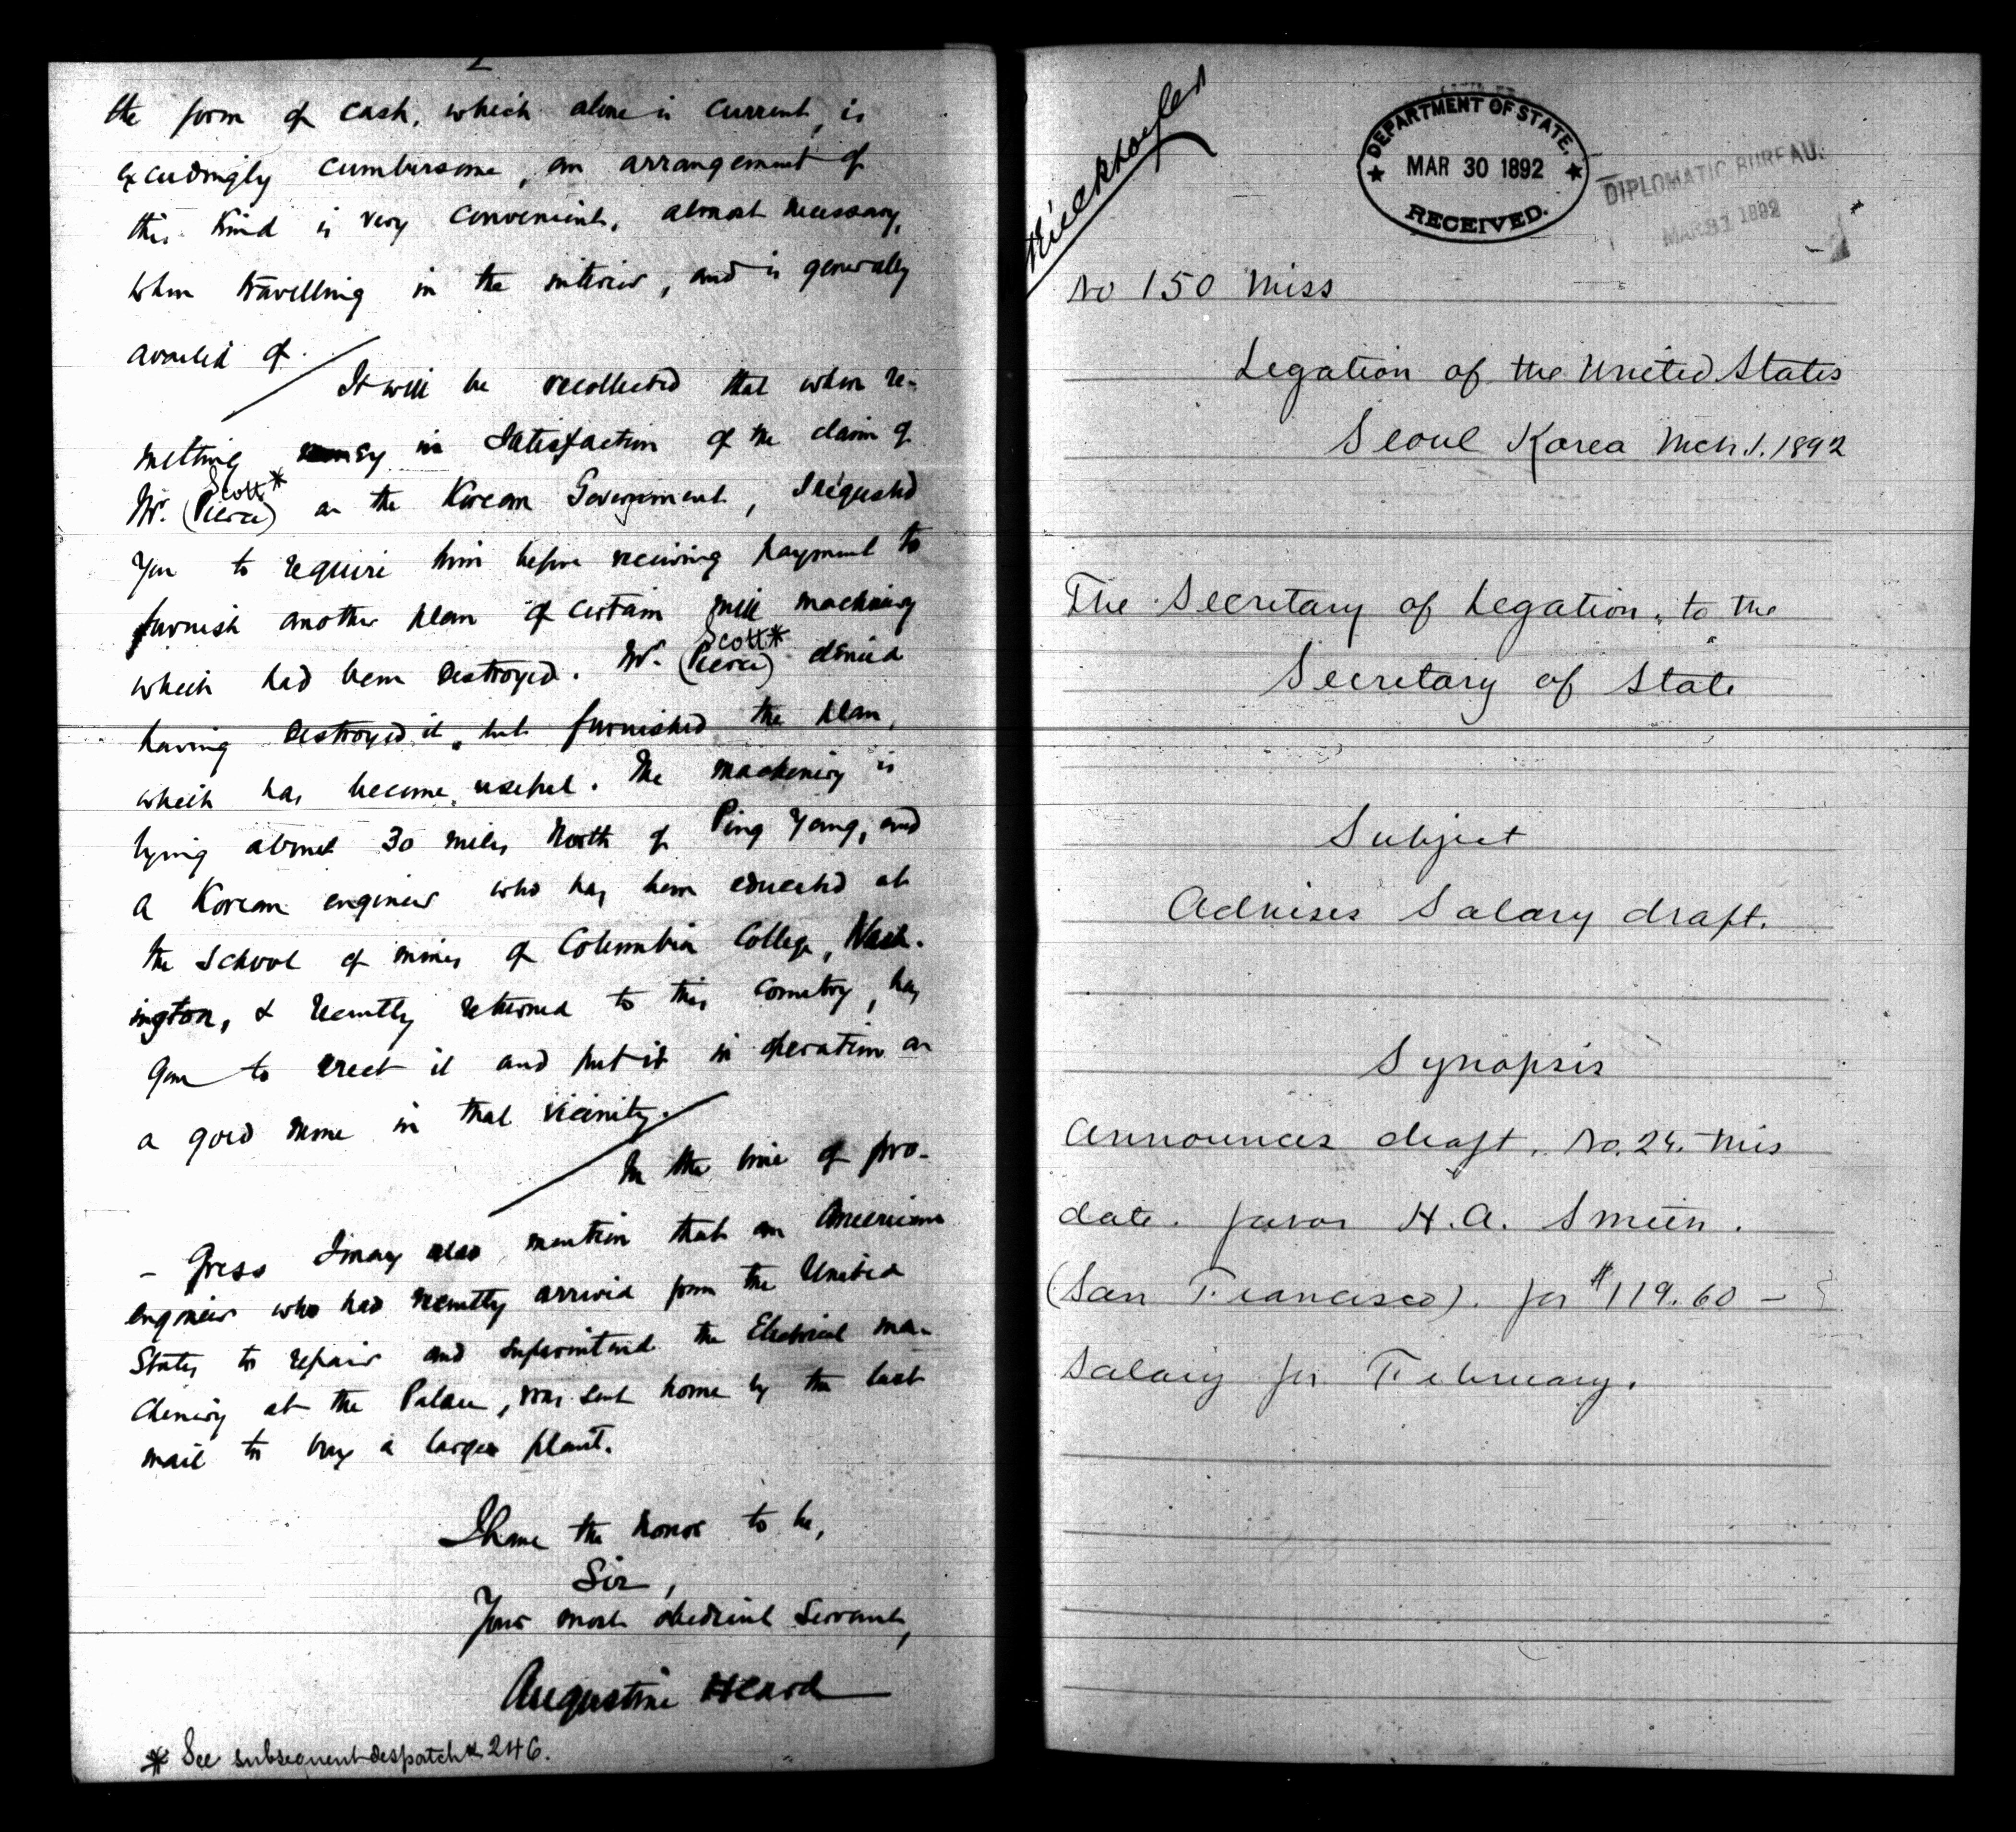 2
the form of cash, which alone is current, is
exceedingly cumbersome, an arrangement of
this kind is very convenient, almost necessary,
when travelling in the interior, and is generally
availed of.
It will be recollected that when re-
mitting money in satisfaction of the claim of
Scott*
Mr. (Pierce) on the Korean Government, I requested
you to require him before receiving payment to
furnish another plan of certain mill machinery
Scott*
which had been destroyed. Mr. (Pierce) denied
having destroyed it, but furnished the plan,
which has become useful. The machinery is
lying about 30 miles North of Ping Yang, and
a Korean engineer who has been educated at
the School of mines of Columbia College, Wash-
ington, & recently returned to this country, has
gone to erect it and put it in operation on
a gold mine in that vicinity.
In the line of pro-
- gress I may also mention that an American
engineer who had recently arrived from the United
States to repair and superintend the Electrical ma-
chinery at the Palace, was sent home by the last
mail to buy a larger plant.
I have the honor to be,
Sir,
Your most obedient Servant,
Augustine Heard
* See subsequent despatch 246.
DEPARTMENT OF STATE,
MAR 30 1892
RECEIVED.
DIPLOMATIC BUREAU.
MAR 31 1892
No 150 Miss
Legation of the United States
Seoul Korea Mch. 1. 1892
The Secretary of Legation, to the
Secretary of State
Subject
Advises Salary draft.
Synopsis
Announces draft, No. 24. this
date. favor H. A. Smith.
(San Francisco). for $119.60 -
Salary for February.